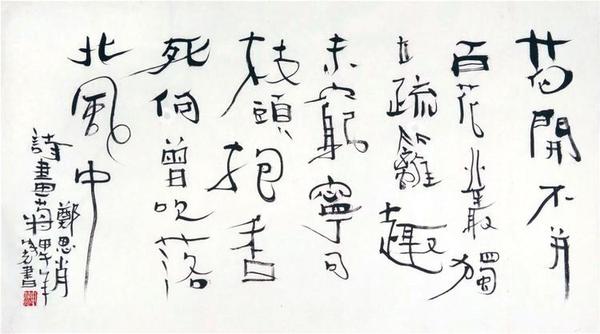 花開不并
百花叢獨
立疏籬趣
未窮寧可
枝頭抱香
死何曾吹落
北風中
鄭思肖
詩畫菊甲午年
書